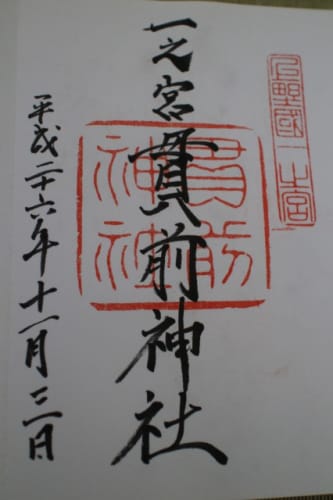 上野國一之宮
一之宮貫前神社
貫前
神社
平成二十六年十一月三日